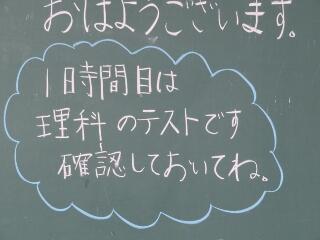 おはようございます。
1日時間目は
理科のテストです
確認しておいてね。